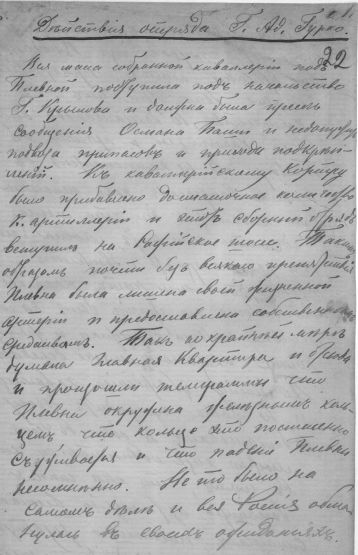 Дѣйствія отряда Г. Ад. Гурко.
22
Вся масса собранной кавалеріи подъ
Плевной поступила подъ начальство
Г. Крылова и должна была пресѣчь
сообщенія Османа Паши и недопускать
подвоза припасовъ и прихода подкрѣп
леній. Къ кавалерійскому Корпусу
было прибавлено достаточное количество
К. артиллеріи и этотъ сборный отрядъ
вступилъ на Софійское шоссе. Такимъ
образомъ почти безъ всякаго препятствія
Плевна была лишена своей жизненной
артеріи и предоставлена собственнымъ
средствамъ. Такъ по крайней мѣрѣ
думала Главная Квартира и
и прошли телеграммы что
Плевна окружена желѣзнымъ коль
цемъ что кольцо это постепенно
съуживается и что паденіе Плевны
несомнѣнно. Не то было на
самомъ дѣлѣ и вся Россія обма
нулась въ своихъ ожиданіяхъ.